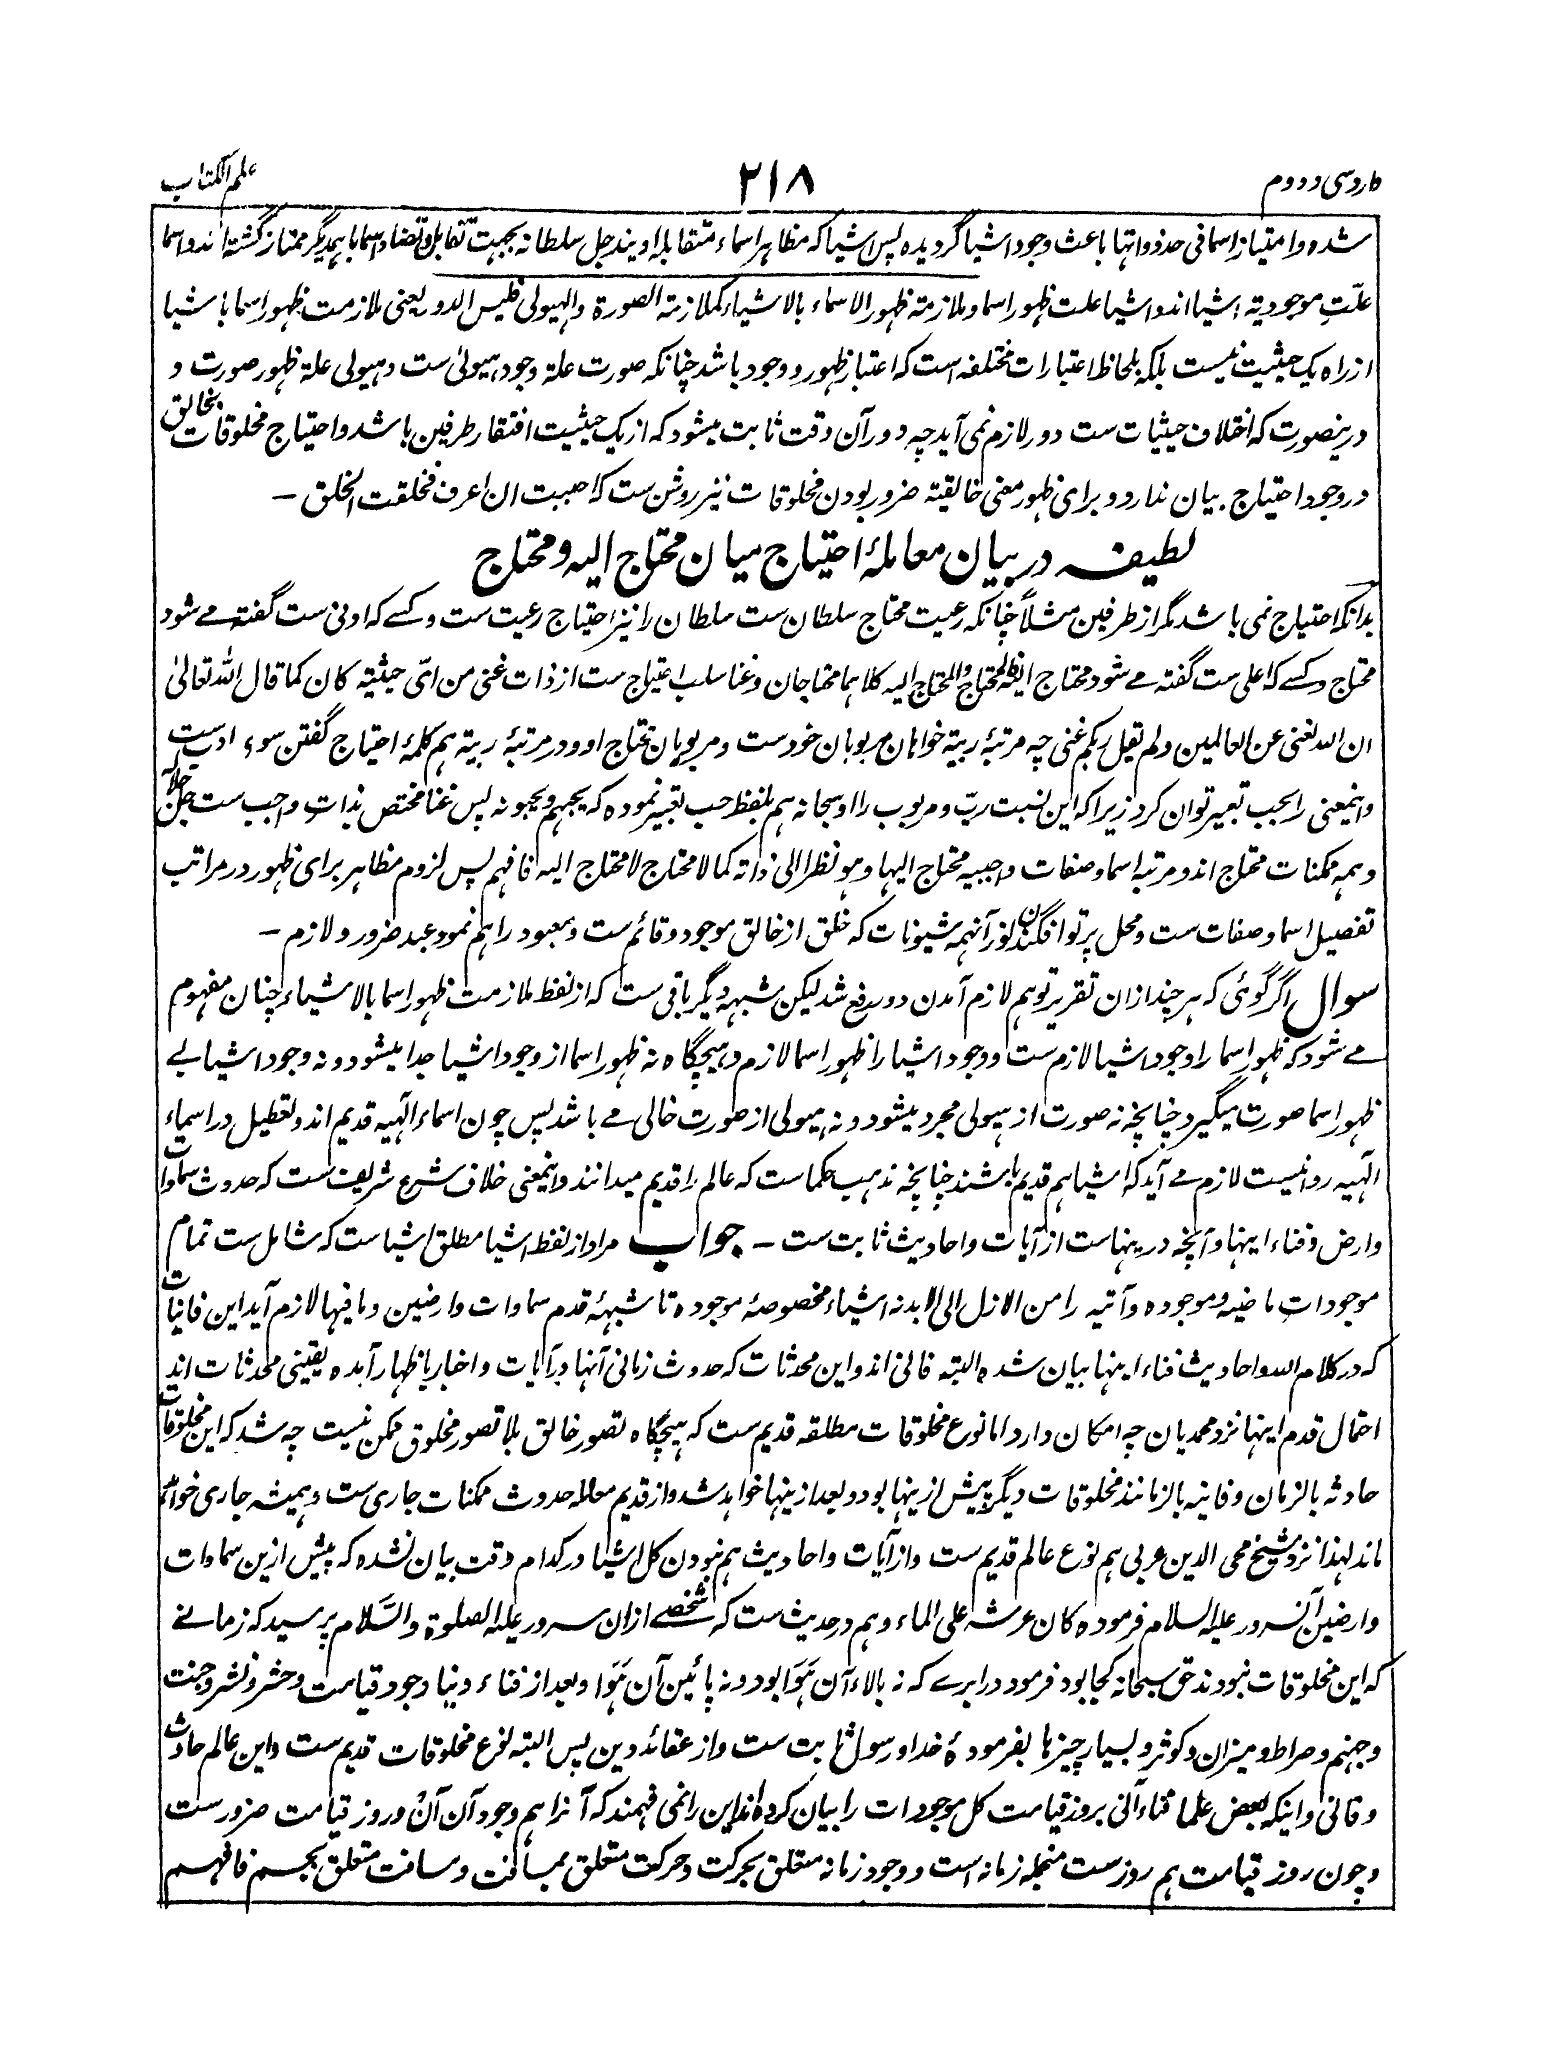 وارد سی و دوم
۲۱۸
علم الکتاب
شده و امتیاز اسما فی حد ذواتها باعث وجود اشیا گردیده پس اشیا که مظاهر اسماء متقابلہ اویند جل سلطانہ بجہت تقابل و تضاد اسما باہمدیگر ممتاز گشتہ اند و اسما
علّتِ موجودیة اشیا اند و اشیا علت ظهور اسما و ملازمة ظهور الاسماء بالاشیاء کملازمة الصورة والہیولی فلیس الدور یعنی ملازمت ظهور اسما با شیا
از راه یک حیثیت نیست بلکہ بلحاظ اعتبارات مختلفہ است کہ اعتبار ظهور و وجود باشد چنانکہ صورت علة وجود ہیولیٰ ست و ہیولی علة ظهور صورت و
درینصورت کہ اختلاف حیثیات ست دور لازم نمی آید چه دور آن وقت ثابت میشود کہ از یک حیثیت افتقار طرفین باشد و احتیاج مخلوقات بخالق
در وجود احتیاج بیان ندارد و برای ظهور معنی خالقیة ضرور بودن مخلوقات نیز روشن ست کہ احببت ان اعرف فخلقت الخلق ـ
لطیفہ در بیان معاملۂ احتیاج میان محتاج الیہ و محتاج
بدانکہ احتیاج نمی باشد مگر از طرفین مثلاً چنانکہ رعیت محتاج سلطان ست سلطان را نیز احتیاج رعیت ست و کسے کہ ادنی ست گفتہ مے شود
محتاج و کسے کہ اعلی ست گفتہ مے شود محتاج الیہ فالمحتاج والمحتاج الیہ کلاہما محتاجان و غنا سلب احتیاج ست از ذات غنی من ایّ حیثیة کان کما قال اللہ تعالیٰ
ان اللہ لغنی عن العالمین ولم یقل ربکم غنی چه مرتبۂ ربیة خواہان مربوبان خود ست و مربوبان محتاج او و در مرتبۂ ربیة ہم کلمۂ احتیاج گفتن سوء ادب ست
و اینمعنی را بحب تعبیر توان کرد زیرا کہ این نسبت ربّ و مربوب را او سبحانہ ہم بلفظ حب تعبیر نموده کہ یحبہم و یحبونہ پس غنا مختص بذات واجب ست جل جلالہ
و ہمہ ممکنات محتاج اند و مرتبہ اسما و صفات واجبیہ محتاج الیہا و ہو نظرا الی ذاتہ کما لا محتاج لا محتاج الیہ فافہم پس لزوم مظاہر برای ظهور در مراتب
تفصیل اسما و صفات ست و محل پرتو افگندن نور آنہمہ شیونات کہ خلق از خالق موجود و قائم ست و معبود را ہم نمود عبد ضرور و لازم ـ
سوال اگر گوئی کہ ہر چند ازان تقریر توہم لازم آمدن دور رفع شد لیکن شبہہ دیگر باقی ست کہ از لفظ ملازمت ظهور اسما بالاشیاء چنان مفہوم
مے شود کہ ظهور اسما را وجود اشیا لازم ست و وجود اشیا را ظهور اسما لازم و ہیچگاه نہ ظهور اسما از وجود اشیا جدا میشود و نہ وجود اشیا بے
ظهور اسما صورت میگیرد چنانچہ نہ صورت از ہیولی مجرد میشود و نہ ہیولی از صورت خالی مے باشد پس چون اسماء الٰہیہ قدیم اند و تعطیل در اسماء
الٰہیہ روا نیست لازم مے آید کہ اشیا ہم قدیم باشند چنانچہ مذہب حکماست کہ عالم را قدیم میدانند و اینمعنی خلاف شرع شریف ست کہ حدوث سماوات
وارض و فناء اینہا و آنچہ درینہاست از آیات و احادیث ثابت ست ـ جواب مراد از لفظ اشیا مطلق اشیاست کہ شامل ست تمام
موجودات ماضیہ و موجوده و آتیہ را من الازل الی الابد نہ اشیاء مخصوصۂ موجوده تا شبہۂ قدم سماوات وارضین و ما فیہا لازم آید این فانیات
کہ در کلام اللہ و احادیث فناء اینہا بیان شده البتہ فانی اند و این محدثات کہ حدوث زمانی آنہا در آیات و اخبار با ظهار آمده یقینی محدثات اند
احتمال قدم اینہا نزد محمدیان چه امکان دارد اما نوع مخلوقات مطلقہ قدیم ست کہ ہیچگاه تصور خالق بلا تصور مخلوق ممکن نیست چه شد کہ این مخلوقات
حادثہ بالزمان و فانیہ بالزمانند مخلوقات دیگر پیش ازینہا بود و بعد ازینہا خواہد شد و از قدیم معاملہ حدوث ممکنات جاری ست و ہمیشہ جاری خواہد
ماند لہذا نزد شیخ محی الدین عربی ہم نوع عالم قدیم ست و از آیات و احادیث ہم نبودن کل اشیا در کدام وقت بیان نشده کہ پیش ازین سماوات
وارضین آنسرور علیہ السلام فرموده کان عرشہ علی الماء و ہم در حدیث ست کہ شخصے ازان سرور علیہ الصلوة والسّلام پرسید کہ زمانے
کہ این مخلوقات نبودند حق سبحانہ کجا بود فرمود در ابرے کہ نہ بالاء آن ہَوَا بود و نہ پائین آن ہَوَا و بعد از فناء دنیا وجود قیامت و حشر و نشر و جنت
و جہنم و صراط و میزان و کوثر و بسیار چیزہا بفرمودۂ خدا و رسول ثابت ست و از عقائد دین پس البتہ نوع مخلوقات قدیم ست و این عالم حادث
و فانی و اینکہ بعض علما فناء آنی بروز قیامت کل موجودات را بیان کرده اند این را نمی فہمند کہ آنرا ہم وجود آن آنْ و روز قیامت ضرورست
و چون روز قیامت ہم روز ست منجملہ زمانہ است و وجود زمانہ متعلق بحرکت و حرکت متعلق بمسافت و مسافت متعلق بجسم فافہم